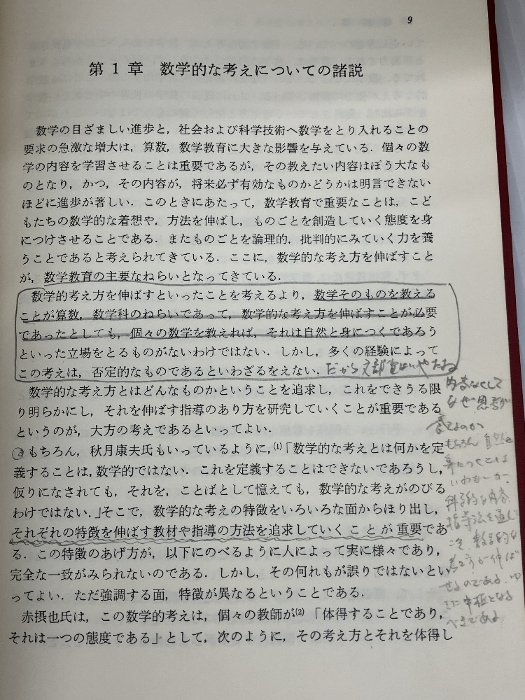 9
第1章 数学的な考えについての諸説
数学の目ざましい進歩と，社会および科学技術へ数学をとり入れることの
要求の急激な増大は，算数，数学教育に大きな影響を与えている．個々の数
学の内容を学習させることは重要であるが，その教えたい内容はぼう大なも
のとなり，かつ，その内容が，将来必ず有効なものかどうかは明言できない
ほどに進歩が著しい．このときにあたって，数学教育で重要なことは，こど
もたちの数学的な着想や，方法を伸ばし，ものごとを創造していく態度を身
につけさせることである．またものごとを論理的，批判的にみていく力を養
うことであると考えられてきている．ここに，数学的な考え方を伸ばすこと
が，数学教育の主要なねらいとなってきている．
数学的考え方を伸ばすといったことを考えるより，数学そのものを教える
ことが算数，数学科のねらいであって，数学的な考え方を伸ばすことが必要
であったとしても，個々の数学を教えれば，それは自然と身につくであろう
といった立場をとるものがないわけではない．しかし，多くの経験によって
この考えは，否定的なものであるといわざるをえない．
数学的な考え方とはどんなものかということを追求し，これをできうる限
り明らかにし，それを伸ばす指導のあり方を研究していくことが重要である
というのが，大方の考えであるといってよい．
もちろん，秋月康夫氏もいっているように，⁽¹⁾「数学的な考えとは何かを定
義することは，数学的ではない．これを定義することはできないであろうし，
仮りになされても，それを，ことばとして憶えても，数学的な考えがのびる
わけではない．」そこで，数学的な考えの特徴をいろいろな面からほり出し，
それぞれの特徴を伸ばす教材や指導の方法を追求していくことが重要であ
る．この特徴のあげ方が，以下にのべるように人によって実に様々であり，
完全な一致がみられないのである．しかし，その何れもが誤りではないとい
ってよい．ただ強調する面，特徴が異なるということである．
赤摂也氏は，この数学的考えは，個々の教師が⁽²⁾「体得することであり，
それは一つの態度である」として，次のように，その考え方とそれを体得し